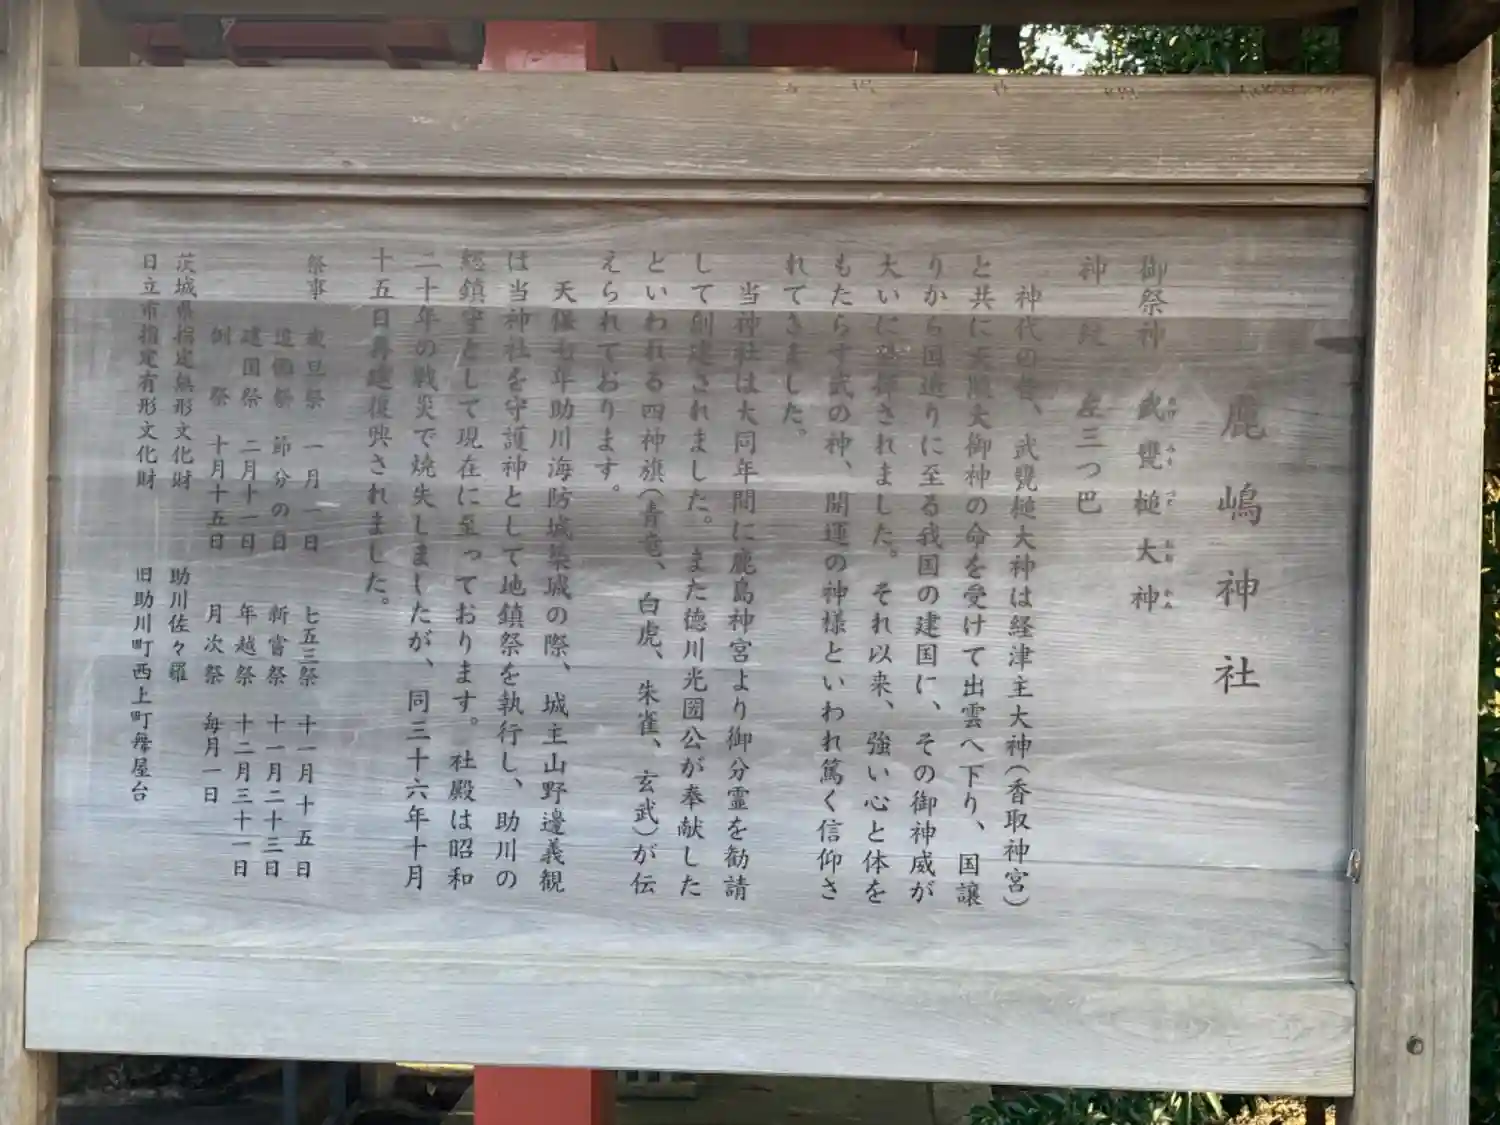 鹿嶋神社
御祭神 武甕槌大神
神紋 左三つ巴
神代の昔、武甕槌大神は経津主大神(香取神宮)
と共に天照大御神の命を受けて出雲へ下り、国譲
りから国造りに至る我国の建国に、その御神威が
大いに発揮されました。それ以来、強い心と体を
もたらす武の神、開運の神様といわれ篤く信仰さ
れてきました。
当神社は大同年間に鹿島神宮より御分霊を勧請
して創建されました。また徳川光圀公が奉献した
といわれる四神旗(青竜、白虎、朱雀、玄武)が伝
えられております。
天保七年助川海防城築城の際、城主山野邉義観
は当神社を守護神として地鎮祭を執行し、助川の
總鎮守として現在に至っております。社殿は昭和
二十年の戦災で焼失しましたが、同三十六年十月
十五日再建復興されました。
祭事 歳旦祭 一月一日 七五三祭 十一月十五日
追儺祭 節分の日 新嘗祭 十一月二十三日
建国祭 二月十一日 年越祭 十二月三十一日
例祭 十月十五日 月次祭 毎月一日
茨城県指定無形文化財 助川佐々羅
日立市指定有形文化財 旧助川町西上町舞屋台